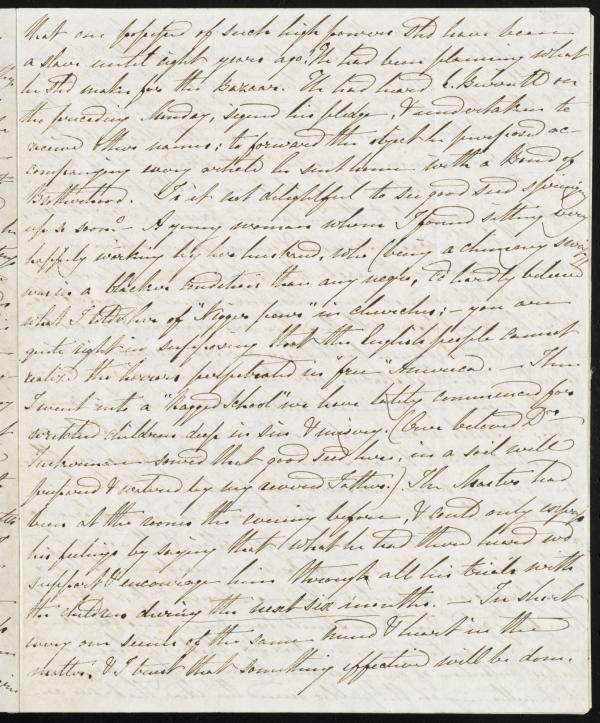 that one possessed of such high powers shd have been
a slave until eight years ago. He had been planning what
he shd make for the Bazaar. He had heard E. Burritt on
the preceding Monday, signed his pledge, & undertaken to
receive other names; to forward the object he proposed ac-
companying every article he sent home with a Bond of
Brotherhood. Is it not delightful to see good seed spring
up so soon? - A young woman whom I found sitting very
happily working by her husband, who (being a chimney sweep)
was in a blacker condition than any negro, cd hardly believe
what I told her of "Nigger pews" in churches; - you are
quite right in supposing that the English people cannot
realize the horrors perpetrated in "free" America. - Then
I went into a "Ragged school" we have lately commenced for
wretched children deep in sin & misery. (Our beloved Dr
Tuckerman sowed that good seed here, in a soil well
prepared & watered by my revered Father.) The Master had
been at the rooms the evening before, & could only express
his feelings by saying that what he had there heard wd
support & encourage him through all his trials with
the children during the next six months. - In short
every one seems of the same mind & heart in the
matter, & I trust that something effective will be done.